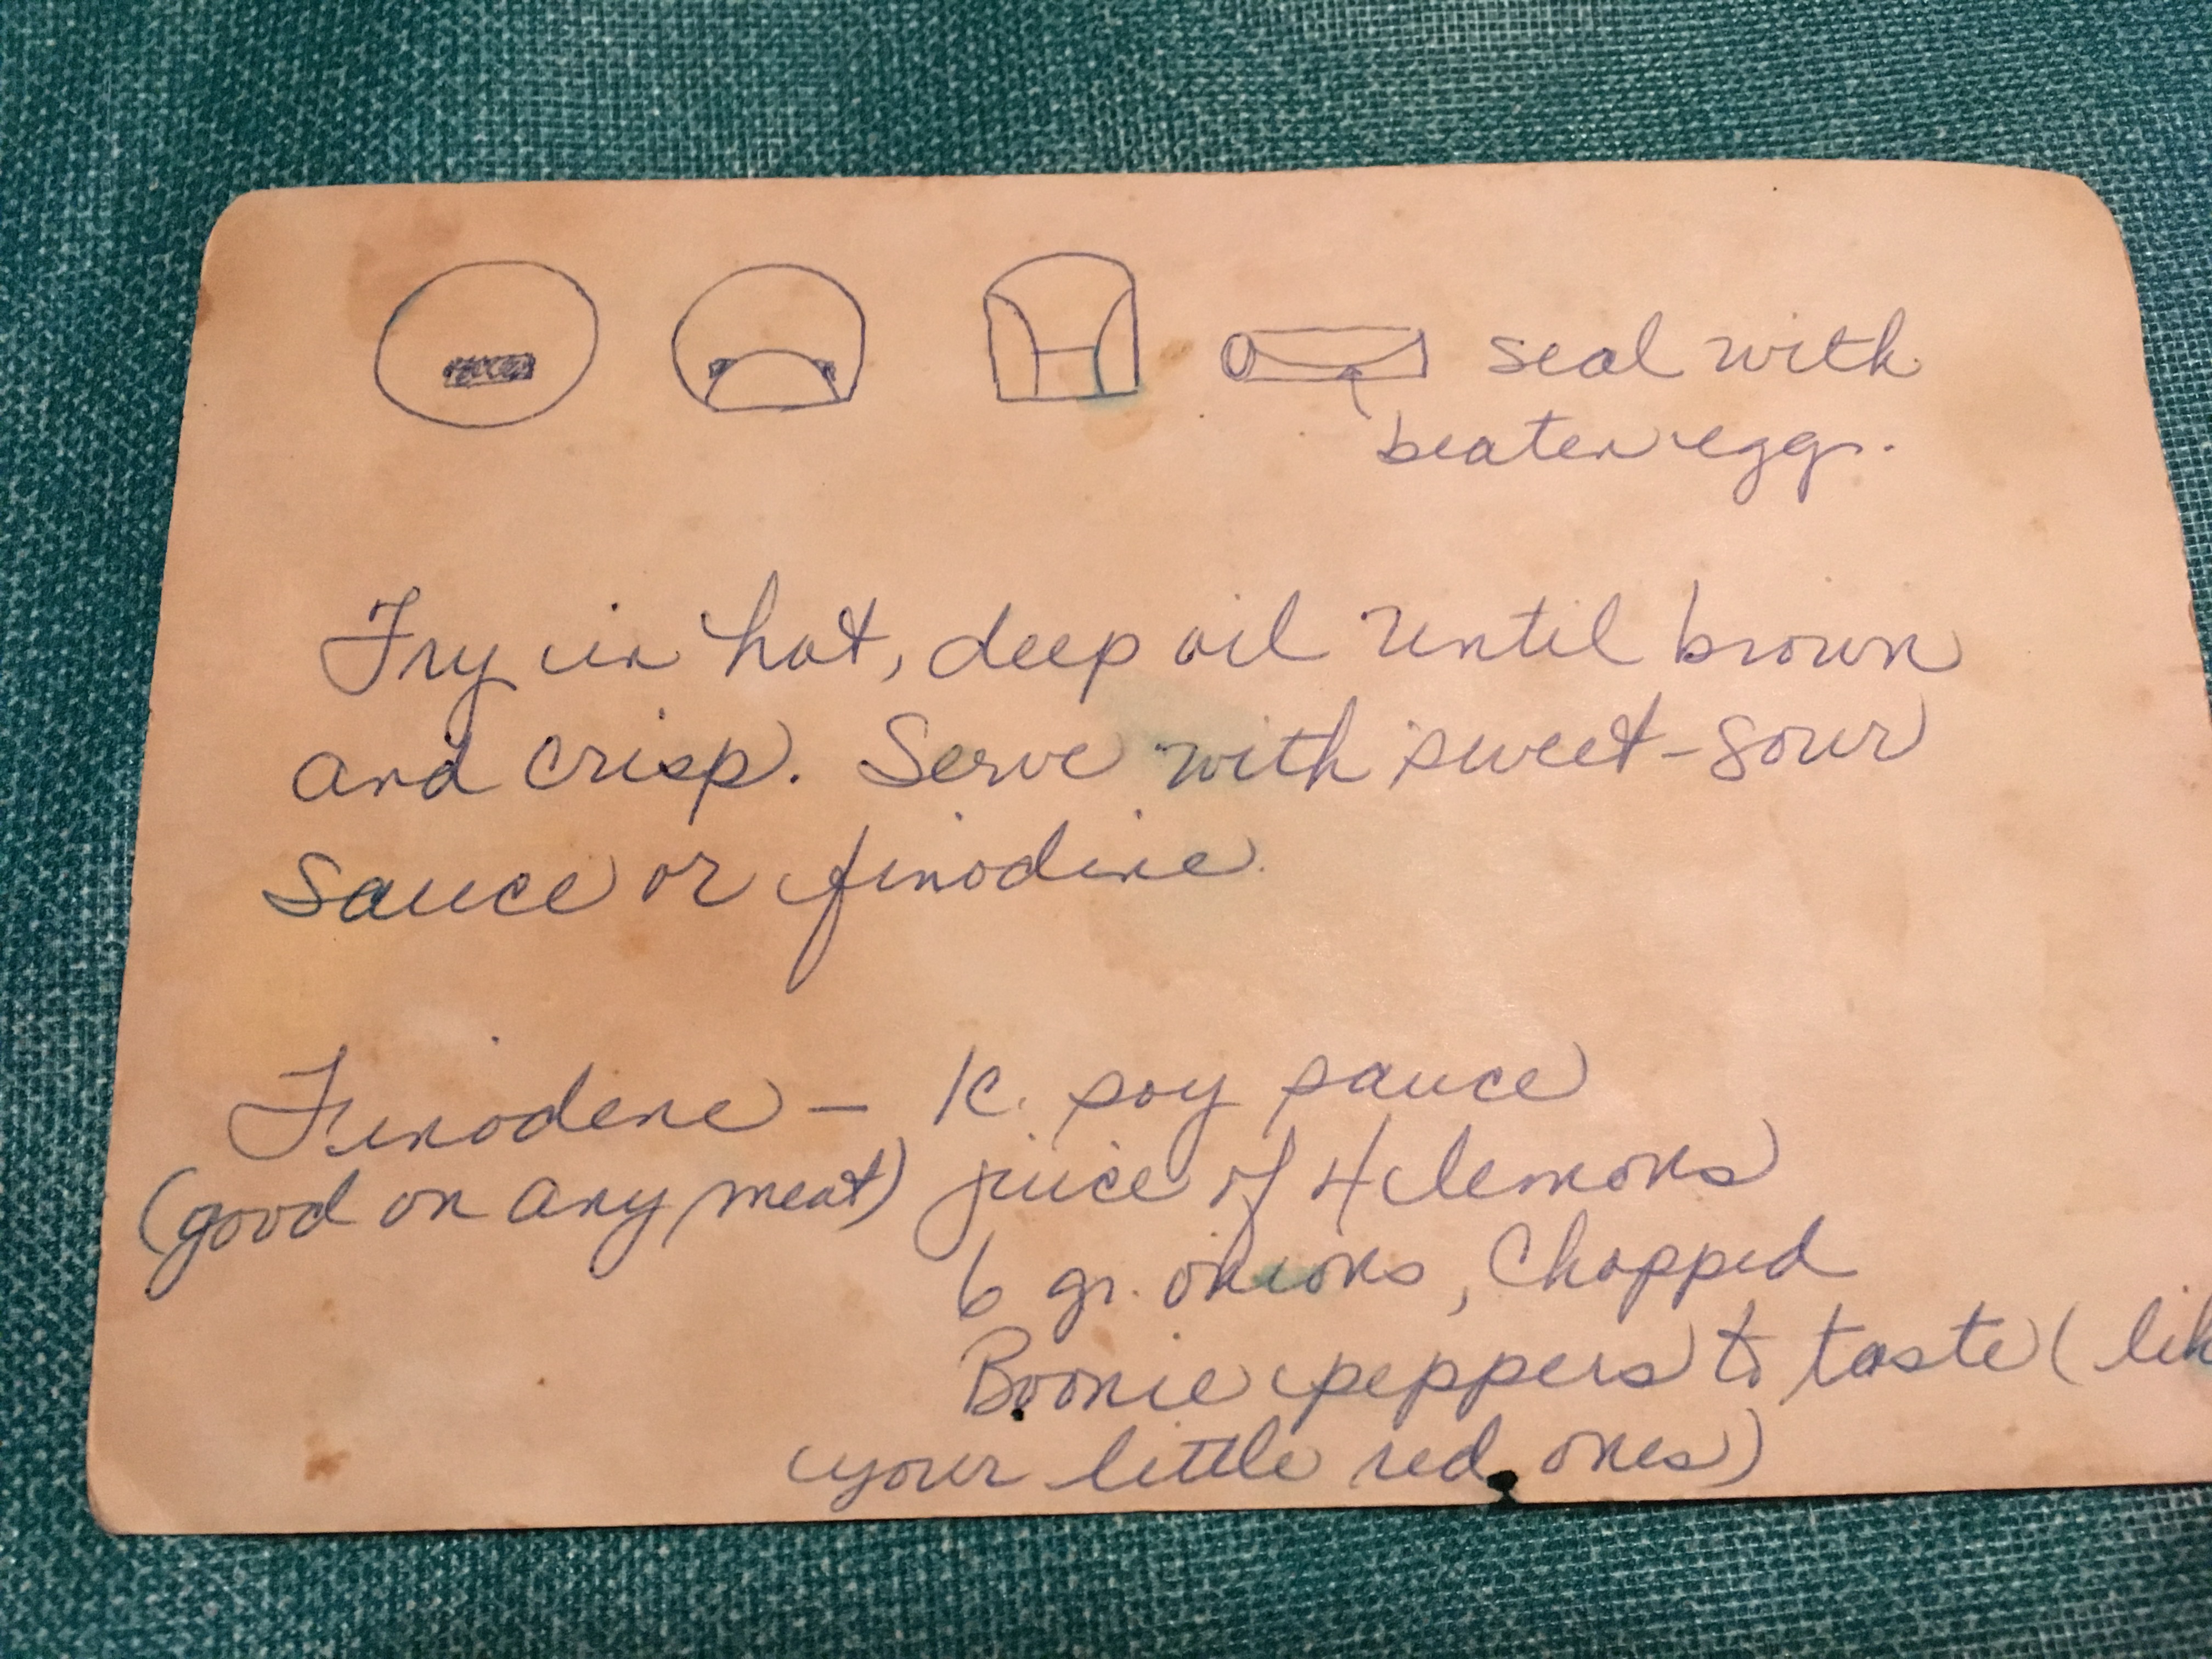 seal with
beaten egg.
Fry in hot, deep oil until brown
and crisp. Serve with sweet-sour
sauce or finodine.
Finodene - 1c. soy sauce
(good on any meat) juice of 4 lemons
6 gr. onions, Chopped
Boonie peppers to taste (lik
your little red ones)